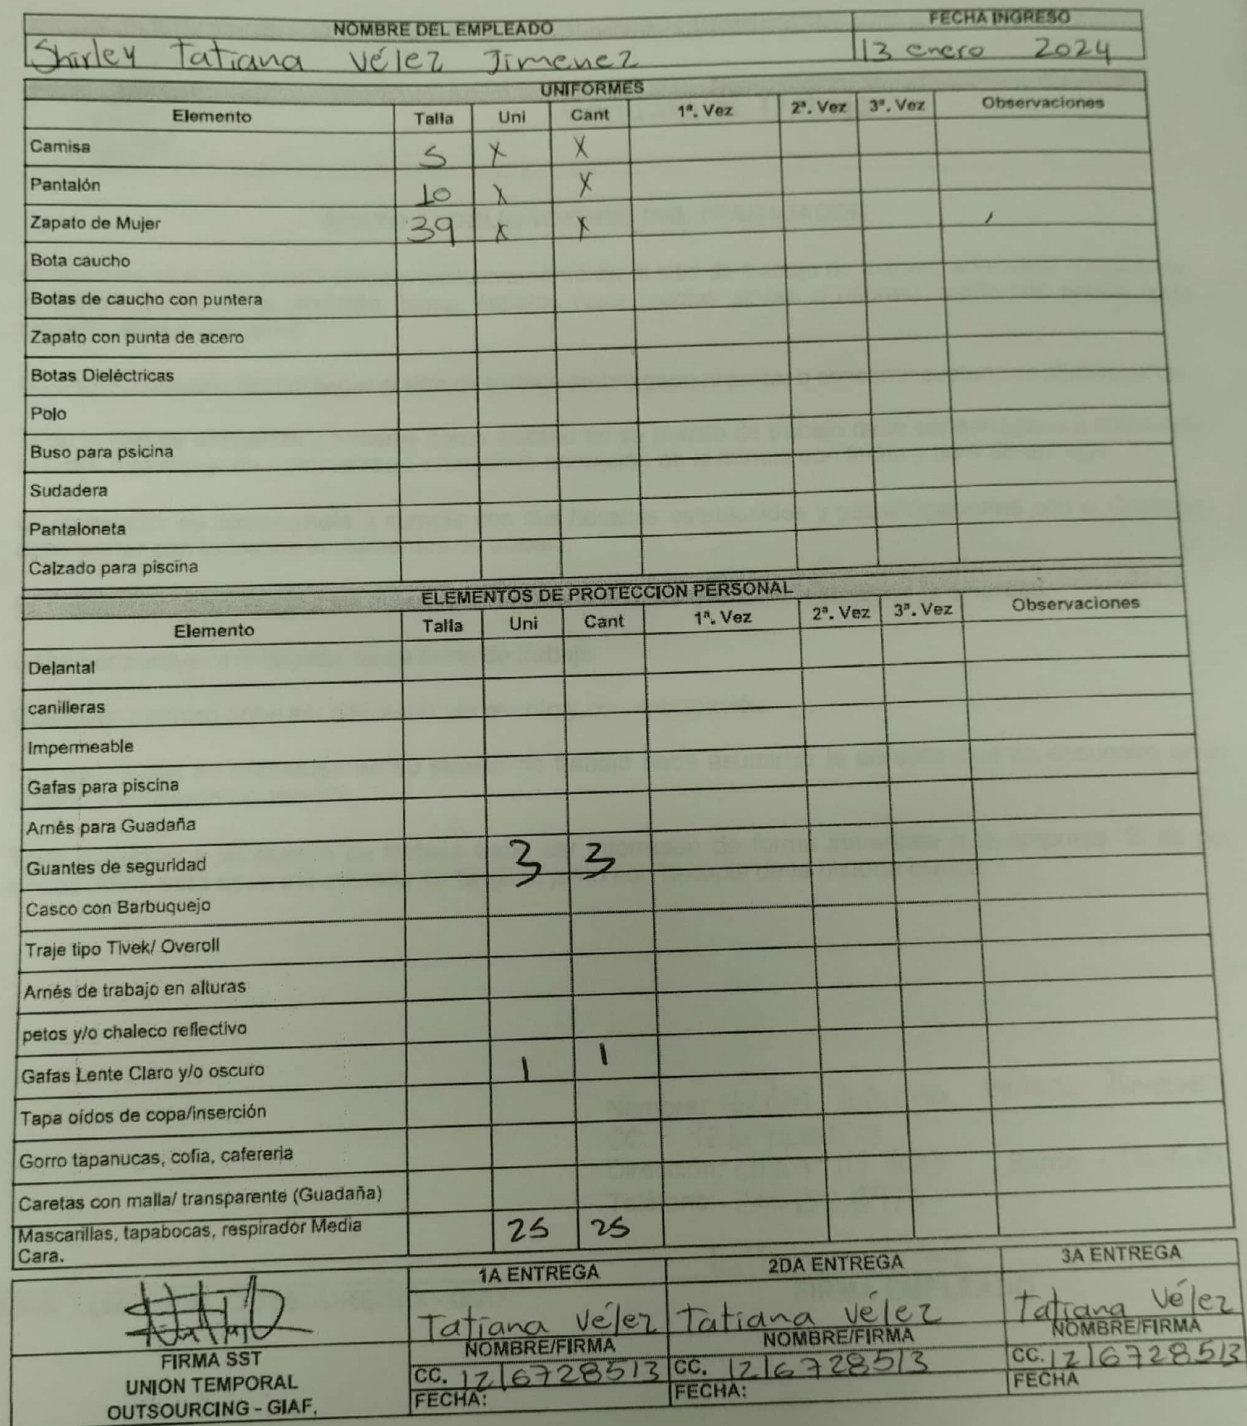 NOMBRE DEL EMPLEADO FECHA INGRESO
Shirley Tatiana Vélez Jimenez 13 enero 2024
UNIFORMES
Elemento Talla Uni Cant 1ª. Vez 2ª. Vez 3ª. Vez Observaciones
Camisa S X X
Pantalón 10 X X
Zapato de Mujer 39 X X
Bota caucho
Botas de caucho con puntera
Zapato con punta de acero
Botas Dieléctricas
Polo
Buso para psicina
Sudadera
Pantaloneta
Calzado para piscina
ELEMENTOS DE PROTECCION PERSONAL
Elemento Talla Uni Cant 1ª. Vez 2ª. Vez 3ª. Vez Observaciones
Delantal
canilleras
Impermeable
Gafas para piscina
Arnés para Guadaña
Guantes de seguridad 3 3
Casco con Barbuquejo
Traje tipo Tivek/ Overoll
Arnés de trabajo en alturas
petos y/o chaleco reflectivo
Gafas Lente Claro y/o oscuro 1 1
Tapa oídos de copa/inserción
Gorro tapanucas, cofia, cafereria
Caretas con malla/ transparente (Guadaña)
Mascarillas, tapabocas, respirador Media
Cara. 25 25
1A ENTREGA 2DA ENTREGA 3A ENTREGA
Tatiana Vélez Tatiana Vélez Tatiana Vélez
NOMBRE/FIRMA NOMBRE/FIRMA NOMBRE/FIRMA
FIRMA SST
CC. 1216728513 CC. 1216728513 CC. 1216728513
UNION TEMPORAL
FECHA: FECHA: FECHA
OUTSOURCING - GIAF.